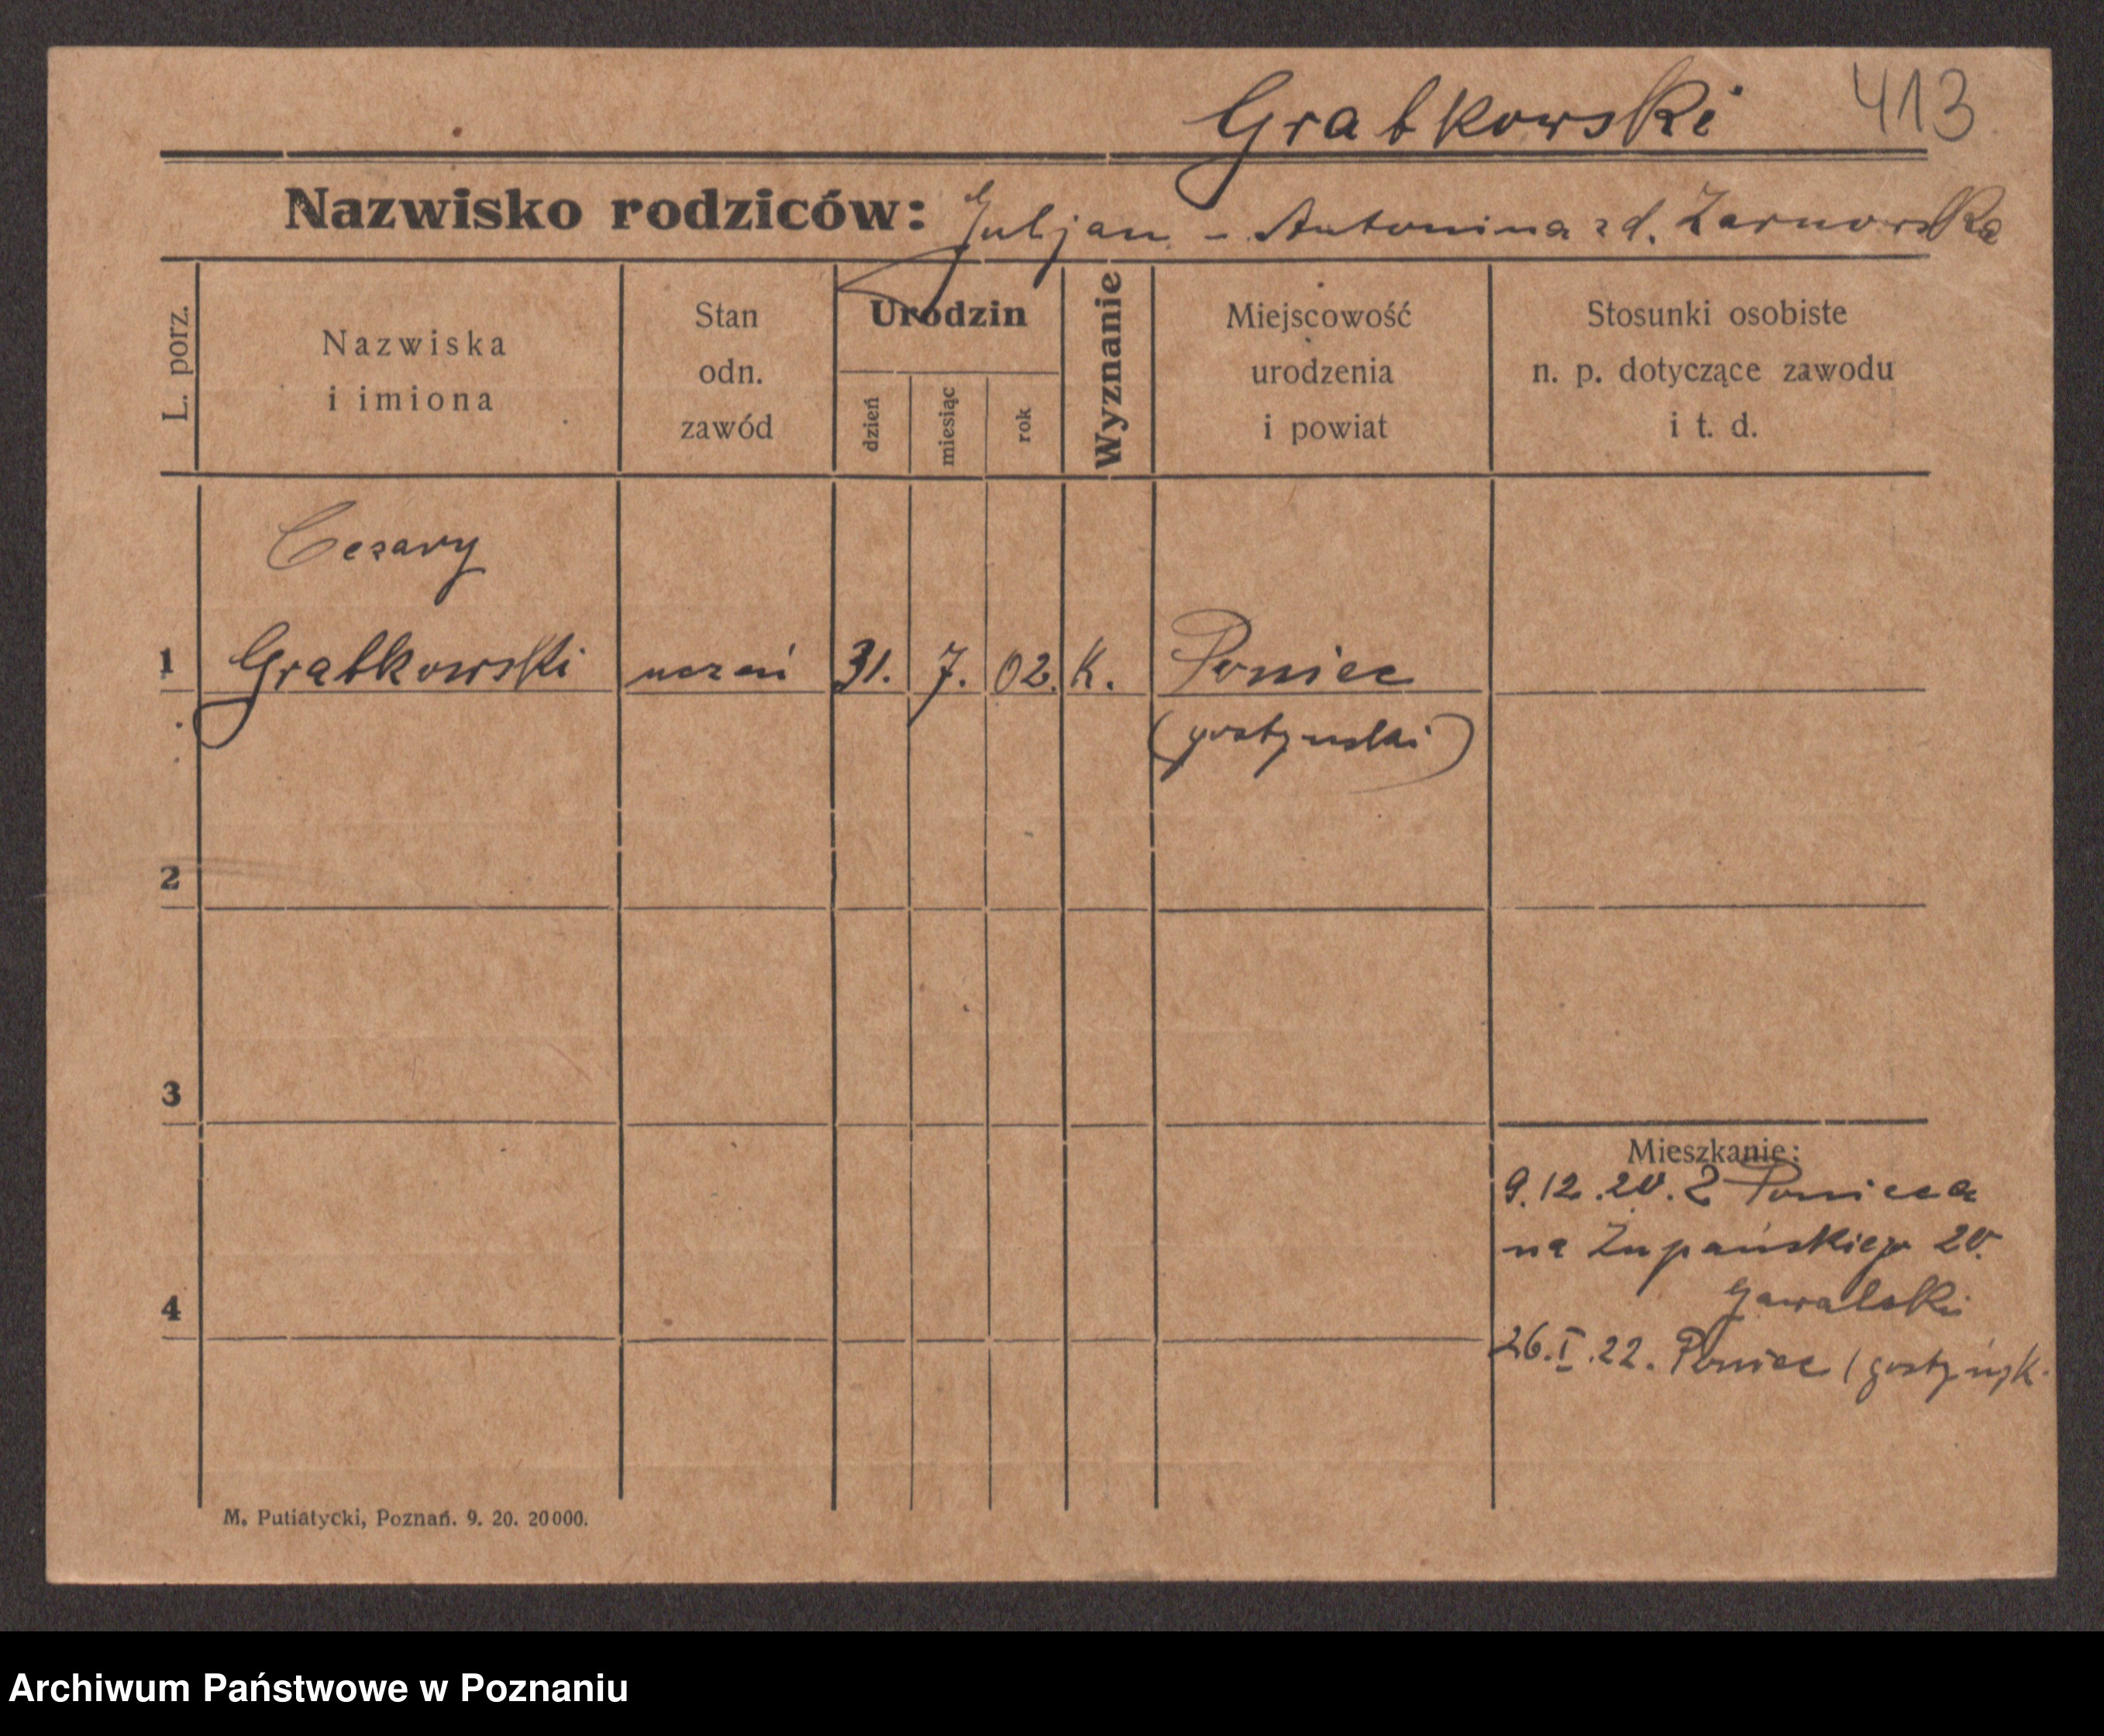 Grabkowski 413
Nazwisko rodziców: Juljan - Antonina zd. Żarnowska
L. porz.
Nazwiska
i imiona
Stan
odn.
zawód
Urodzin
dzień
miesiąc
rok
Wyznanie
Miejscowość
urodzenia
i powiat
Stosunki osobiste
n. p. dotyczące zawodu
i t. d.
Cezary
1 Grabkowski uczeń 31. 7. 02. K. Poniec
(gostynski)
2
3
Mieszkanie:
9.12.20. Z Ponieca
na Żupańskiego 20.
4
26.I.22. Poniec (gostyńsk.
M. Putiatycki, Poznań. 9. 20. 20000.
Archiwum Państwowe w Poznaniu